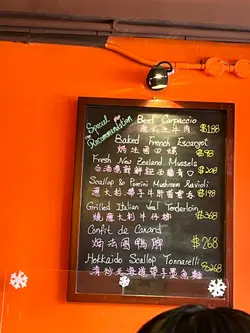 Special
Recommendation
Beef Carpaccio
意式生牛肉 $188
Baked French Escargot
焗法國田螺 $98
Fresh New Zealand Mussels
$208
Scallop & Porcini Mushroom Ravioli
意大利帶子牛肝菌雲吞 $168
Grilled Italian Veal Tenderloin
燒意大利牛仔柳 $368
Confit de Canard
焗法國鴨髀 $268
Hokkaido Scallop Tonnarelli
北海道帶子墨魚麵 $268